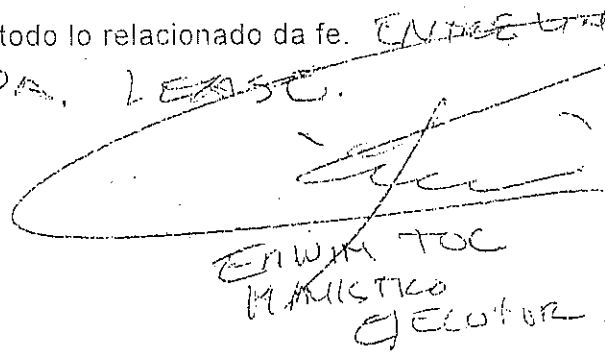 todo lo relacionado da fe. ENTRELI
DA. LEASE.
ERWIN TOC
MINISTRO
EJECUTOR.